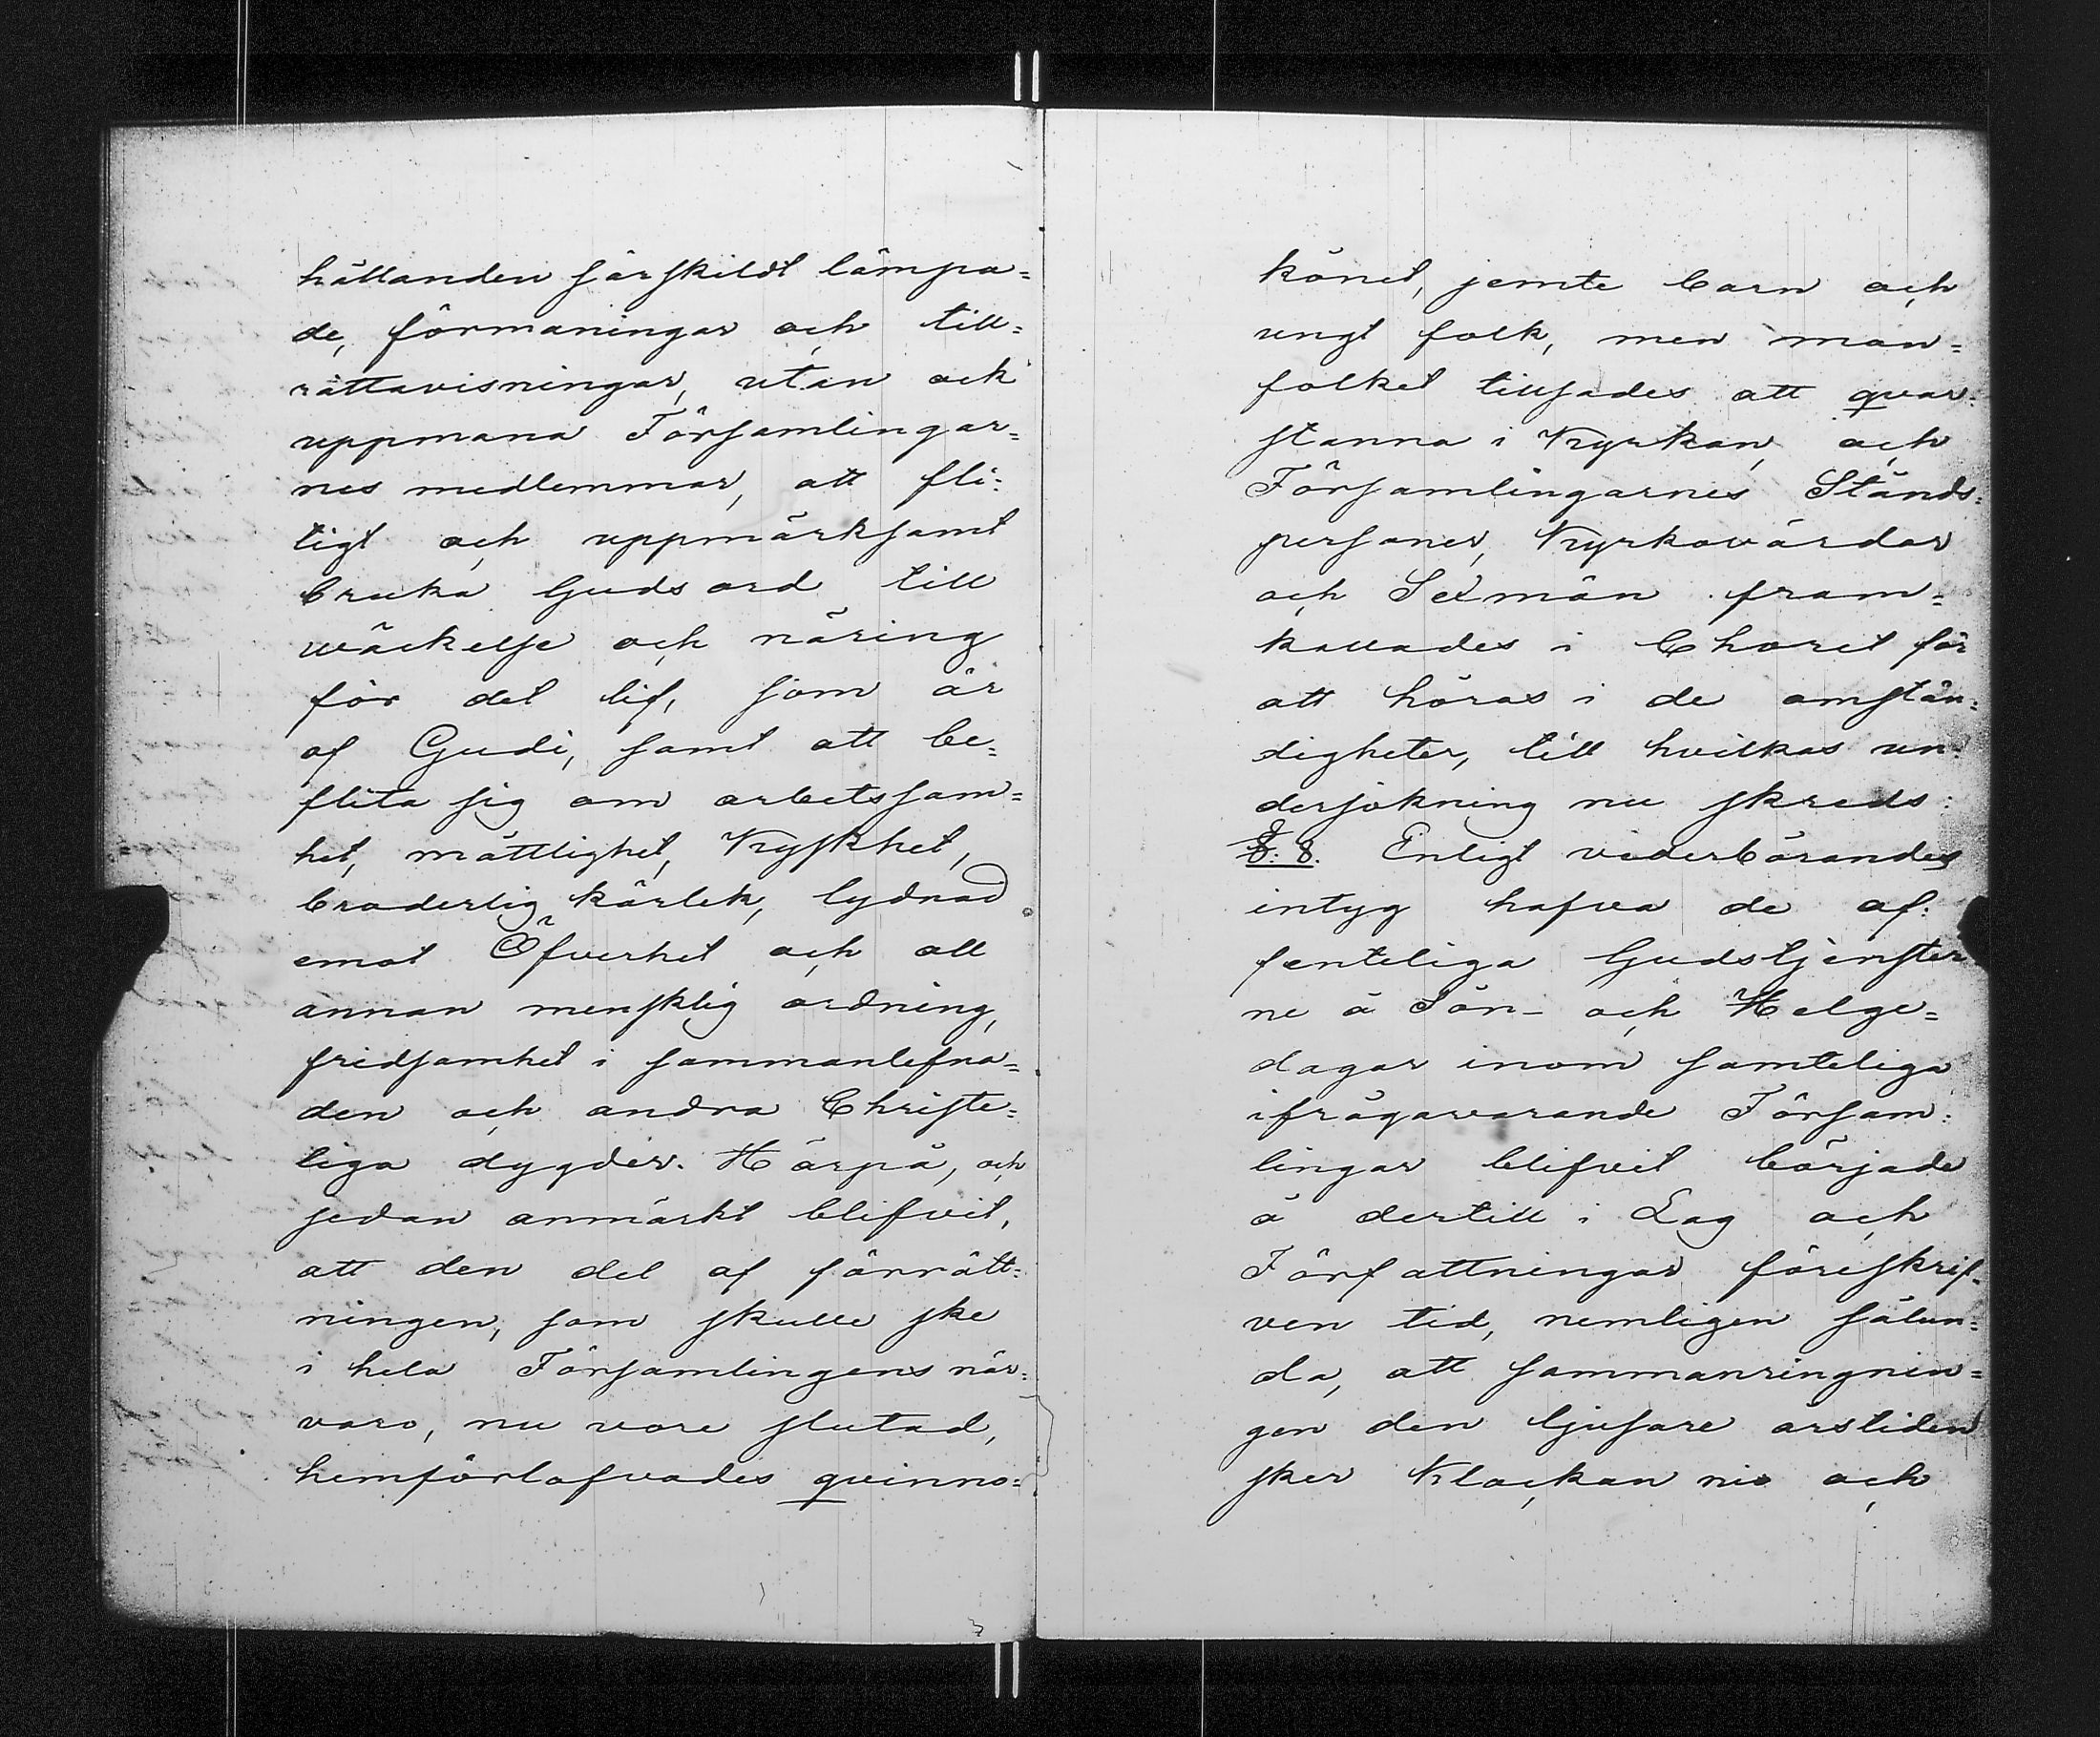 hållanden särskildt lämpa=
de, förmaningar och till=
rättavisningar, utan ock
uppmana Församlingar=
nes medlemmar, att fli=
tigt och uppmärksamt
bruka Guds ord till
wäckelse och näring
för det lif, som är
af Gudi, samt att be=
flita sig om arbetssam=
het, måttlighet, Kyskhet,
broderlig kärlek, lydnad
emot Öfverhet och all
annan mensklig ordning,
fridsamhet i sammanlefna=
den och andra Christe=
liga dygder. Härpå, och
sedan anmärkt blifvit,
att den del af förrätt=
ningen, som skulle ske
i hela Församlingens när=
varo, nu vore slutad,
hemförlofvades qvinno=
könet, jemte barn och
ungt folk, men man=
folket tillsades att qvar=
stanna i Kyrkan, och
Församlingarnes Stånds=
personer, Kyrkovärdar
och Sexmän fram=
kallades i Choret för
att höras i de omstän=
digheter, till hvilkas un=
dersökning nu skreds:
§. 8. Enligt vederbörandes
intyg hafva de of=
fenteliga Gudstjenster
ne å Sön- och Helge=
dagar inom samteliga
ifrågavarande Försam=
lingar blifvit började
å dertill i Lag och
Författningar föreskrif=
ven tid, nemligen sålun=
da, att sammanringnin=
gen den ljusare årstiden
sker Klockan nio och